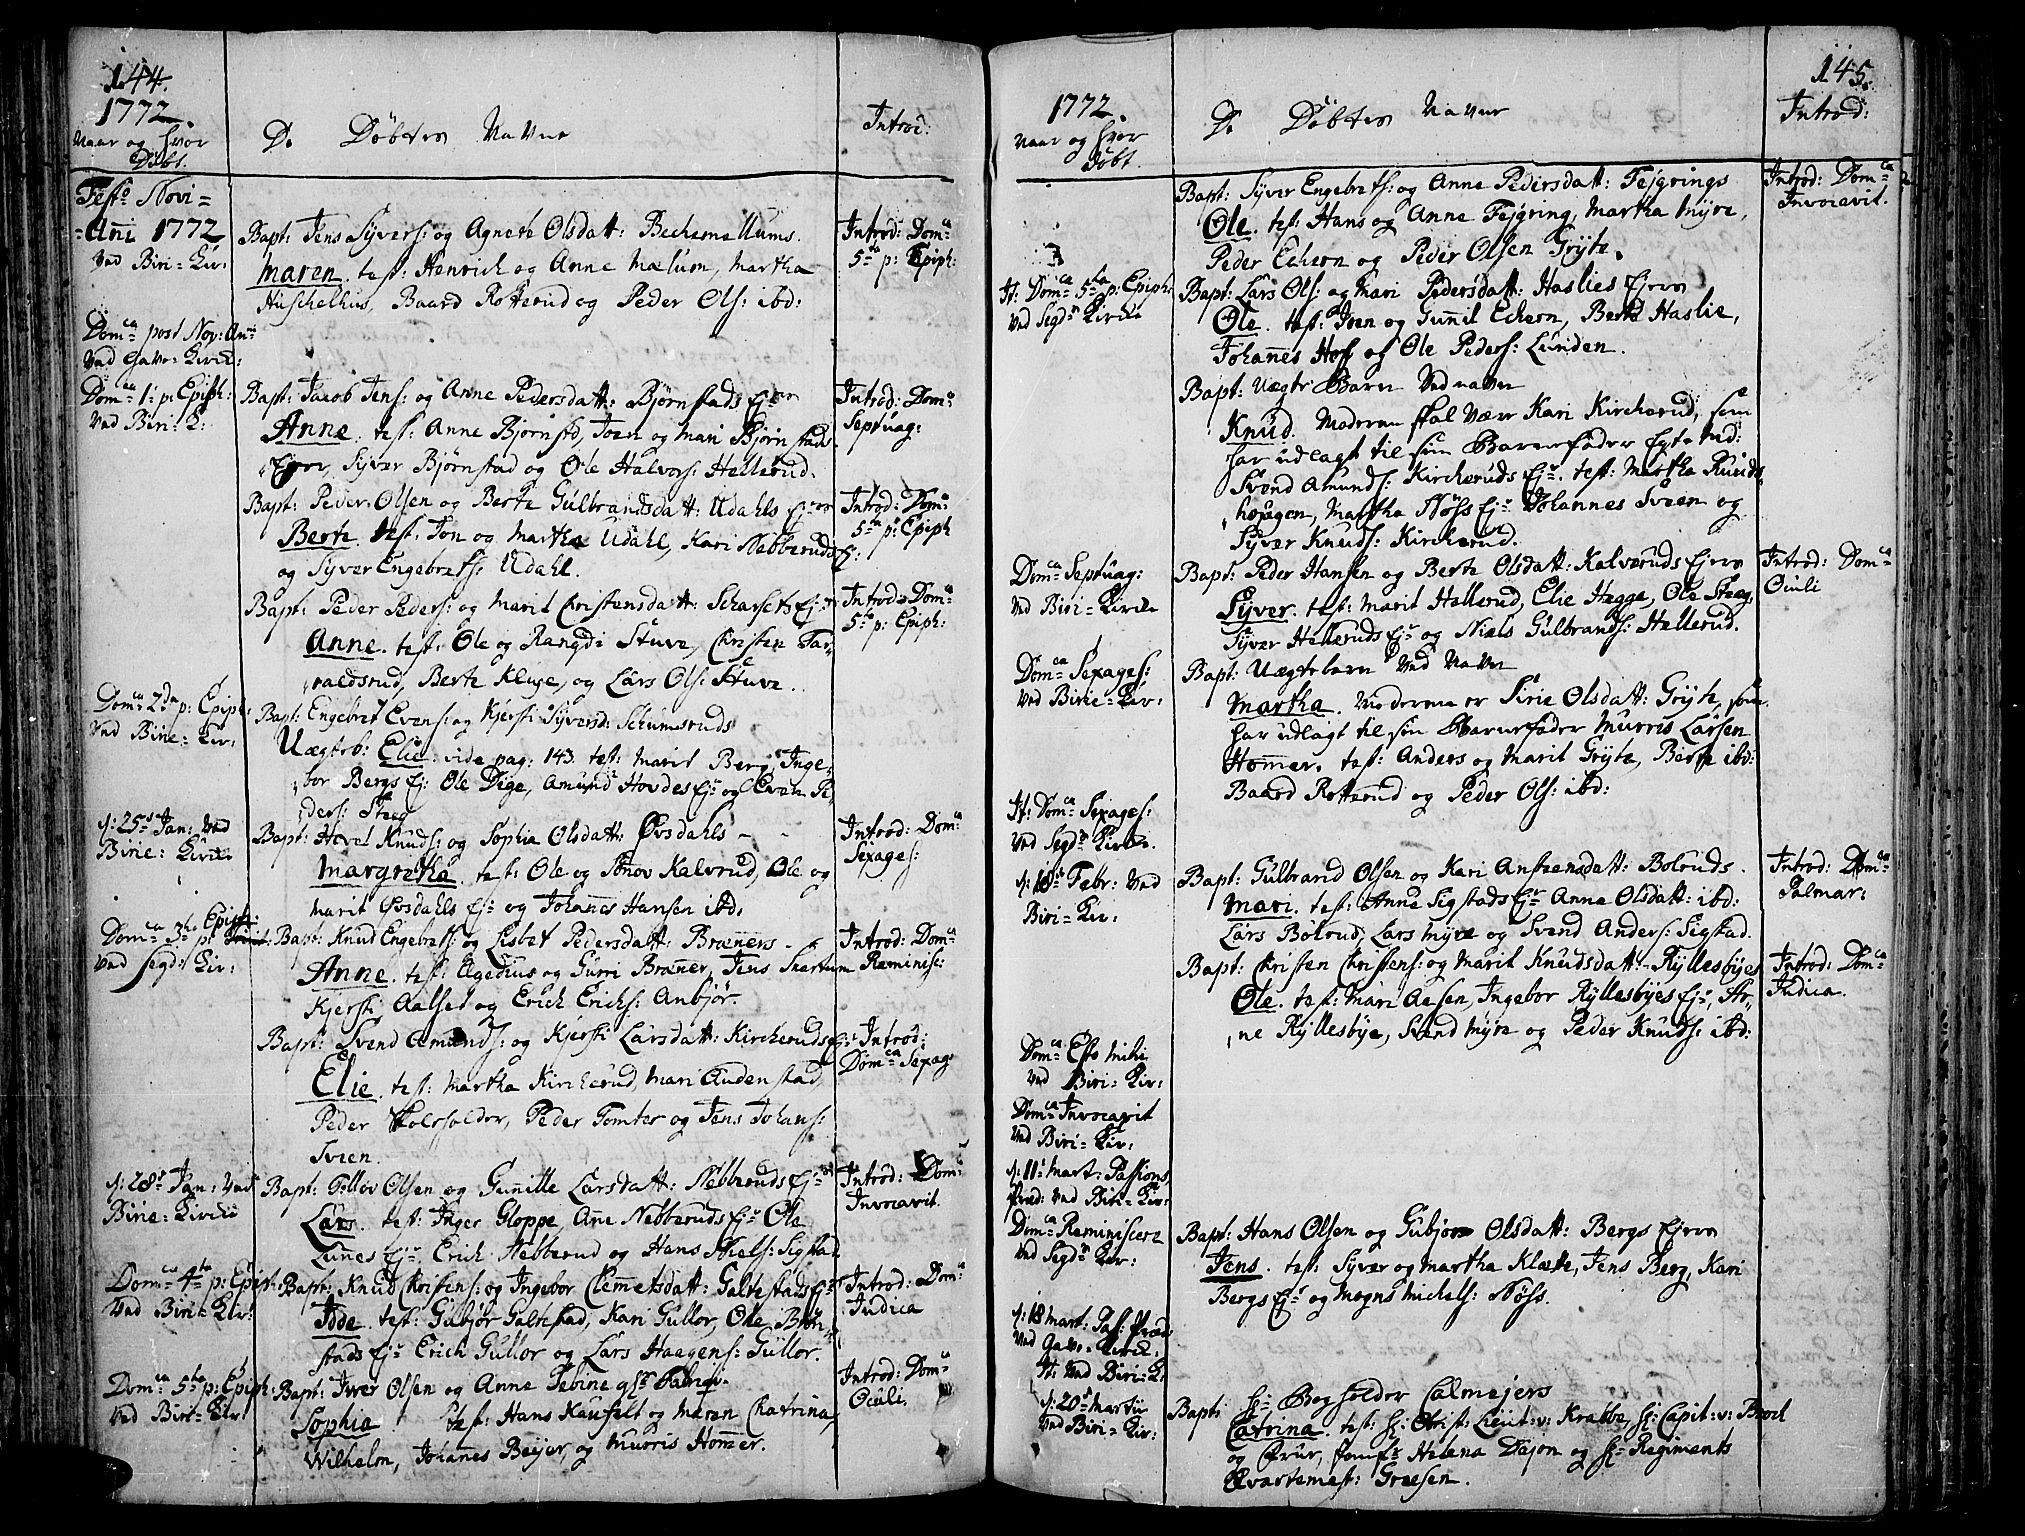 144.
1772.
Naar og hvor
Døbt.
De Døbtes Navne
Introd:
Festo Novi-
-Añi 1772
Ved Biri-Kir:
Bapt: Jens Syvers: og Agnete Olsdatt: Bechemellums.
Maren. test: Henrich og Anne Mælum, Martha
Huschelhus, Baard Rotterud og Peder Ols: ibd:
Introd: Domca
5ta p: Epiph:
Domca post Nov: Anni
Ved Kirche:
Domca 1. p: Epiph:
Ved Biri: K:
Bapt: Jacob Jens: og Anne Pedersdatt: Bjørnstads Ejer
Anne. test: Anne Bjørnstd, Joen og Mari Bjørnstads
Ejer, Syver Bjørnstad og Ole Halvors: Hellerud.
Introd: Domca
Septuag:
Bapt: Peder Olsen og Berte Gulbrandsdatt: Udahls Ejer
Berte. test: Jon og Martha Udahl, Kari Nebberuds Ej:
og Syver Engebrets: Udahl.
Introd: Domca
5ta p: Epiph
Bapt: Peder Peders: og Marit Christensdatt: Scharsets Ej:
Anne. test: Ole og Rangdi Stuve, Christen Tar-
raldsrud, Berte Kluge, og Lars Ols: Stuve.
Introd: Domca
5ta p: Epiph:
Domca 2da p: Epiph:
Ved Birie-Kir:
Bapt: Engebret Evens: og Kjersti Syversd: Schumsruds
Uægteb: Elie. vide pag: 143. test: Marit Berg, Inge-
bor Bergs Ej: Ole Dige, Amund Hovdes Ejr og Even Pe-
ders: Steg
d: 25 Jan: Ved
Birie: Kirche
Bapt: Hovel Knuds: og Sophia Olsdatt: Øvsdahls
Margretha. test: Ole og Sønov Kalvrud, Ole og
Marit Øvsdahls Ejr og Johannes Hansen ibd:
Introd: Domca
Sexages:
Domca 3tia p: Epiph:
Ved Segd: Kir:
Bapt: Knud Engebrets: og Lisbet Pedersdatt: Bræñers
Anne. test: Egedius og Gurri Bræñer, Jens Skartum
Kjersti Aalset og Erich Erichs: Anbjør.
Introd: Domca
Reminisc:
Bapt: Svend Amunds: og Kjersti Larsdatt: Kircheruds Ej:
Elie. test: Martha Kircherud, Mari Audenstad,
Peder Skoleholder, Peder Tomter og Jens Johans:
Svien.
Introd:
Domca Sexag:
d: 28 Jan: Ved
Birie: Kirche
Bapt: Tollov Olsen og Guñille Larsdatt: Nebberuds Ejr
Lars. test: Inger Gloppe, Añe Nebberuds Ejr Ole
Luñes Ejr Erich Nebberud og Hans Niels: Sigstad
Introd: Domca
Invocavit.
Domca 4ta p: Epiph:
Ved Biri-Kir:
Bapt: Knud Christens: og Ingebor Clemetsdatt: Galtestads Ejr
Idde. test: Gubjør Galtestad, Kari Gullor, Ole Bjørn-
stads Ejr Erich Gullor og Lars Haagens: Gullor.
Introd: Domca
Judica
Domca 5ta p: Epiph:
Ved Biri-Kir:
Bapt: Iver Olsen og Anne Sebine
Sophia test: Hans Kaufelt og Maren Chatrina,
Wilhelm, Johannes Beyer, og Murris Hom̃er.
Introd: Domca
Oculi.
145.
1772.
Naar og hvor
Døbt.
De Døbtes Navne
Introd:
Bapt: Syver Engebrets: og Anne Pedersdatt: Fejgrings
Ole. test: Hans og Anne Fejgring, Martha Myre,
Peder Echern og Peder Olsen Gryte.
Introd: Domca
Invocavit.
It: Domca 5ta p: Epiph:
Ved Segds Kirche
Bapt: Lars Ols: og Mari Pedersdatt: Haslies Ejere
Ole. test: Joen og Guñil Echern, Berte Haslie,
Johañes Hof og Ole Peders: Lunden.
Bapt: Uægte Barn Ved navn
Knud. Moderen skal være Kari Kircherud, som
har udlagt til sin Barnefader Egte Md:
Svend Amunds: Kircheruds Ejr. test: Martha Ruuds-
hougen, Martha Nøss Ejr Johannes Sveen og
Syver Knuds: Kircherud.
Domca Septuag:
Ved Biri-Kirche
Bapt: Peder Hansen og Berte Olsdatt: Kalveruds Ejere
Syver. test: Marit Hellerud, Elie Hegge, Ole Steeg,
Syver Helleruds Ejr og Niels Gulbrands: Hellerud.
Introd: Domca
Oculi
Domca Sexages:
Ved Birie-Kir:
Bapt: Uægtebarn Ved navn
Martha. Moderen er Sirie Olsdatt: Gryte, som
har udlagt til sin Barnefader Murris Larsen
Hom̃er. test: Anders og Marit Gryte, Berte ibd:
Baard Rotterud og Peder Ols: ibd:
It: Domca Sexages:
Ved Segds Kirche.
d: 18 Febr: Ved
Biri-Kir:
Bapt: Gulbrand Olsen og Kari Anstensdatt: Bolruds.
Mari. test: Anne Sigstads Ejr Anne Olsdatt: ibd:
Lars Bolrud, Lars Myre og Svend Anders: Sigstad.
Introd: Domca
Palmar:
Bapt: Christen Christens: og Marit Knudsdatt: Ryllesbyes
Ole. test: Mari Aasen, Ingebor Ryllesbyes Ejr, Ar-
ne Ryllesbye, Svend Myre og Peder Knuds: ibd:
Introd: Domca
Judica.
Domca Esto mihi
Ved Biri-Kir:
Domca Invocavit
Ved Biri-Kir:
d: 11 Mart: Passions
Præd: Ved Biri-Kir:
Domca Reminiscere
Ved Segds Kir:
Bapt: Hans Olsen og Gubjør Olsdatt: Bergs Ejere
Jens. test: Syver og Martha Klætte, Jens Berg, Kari
Bergs Ejr og Mogns Michels: Nøss.
d: 18 Mart: Pas: Præd:
Ved Kirche
It: Ved Biri-K:
d: 20 Martii
Ved Biri-Kir:
Bapt: Hr Bogholder Calmejers
Catrina. test: Hr: Obrist: Lieut: v: Krabbe, Hr: Capit: v: Brock
og Frue, Jomfr Helena Dajon og Hr Regiments
Qvartermest: Greesen.